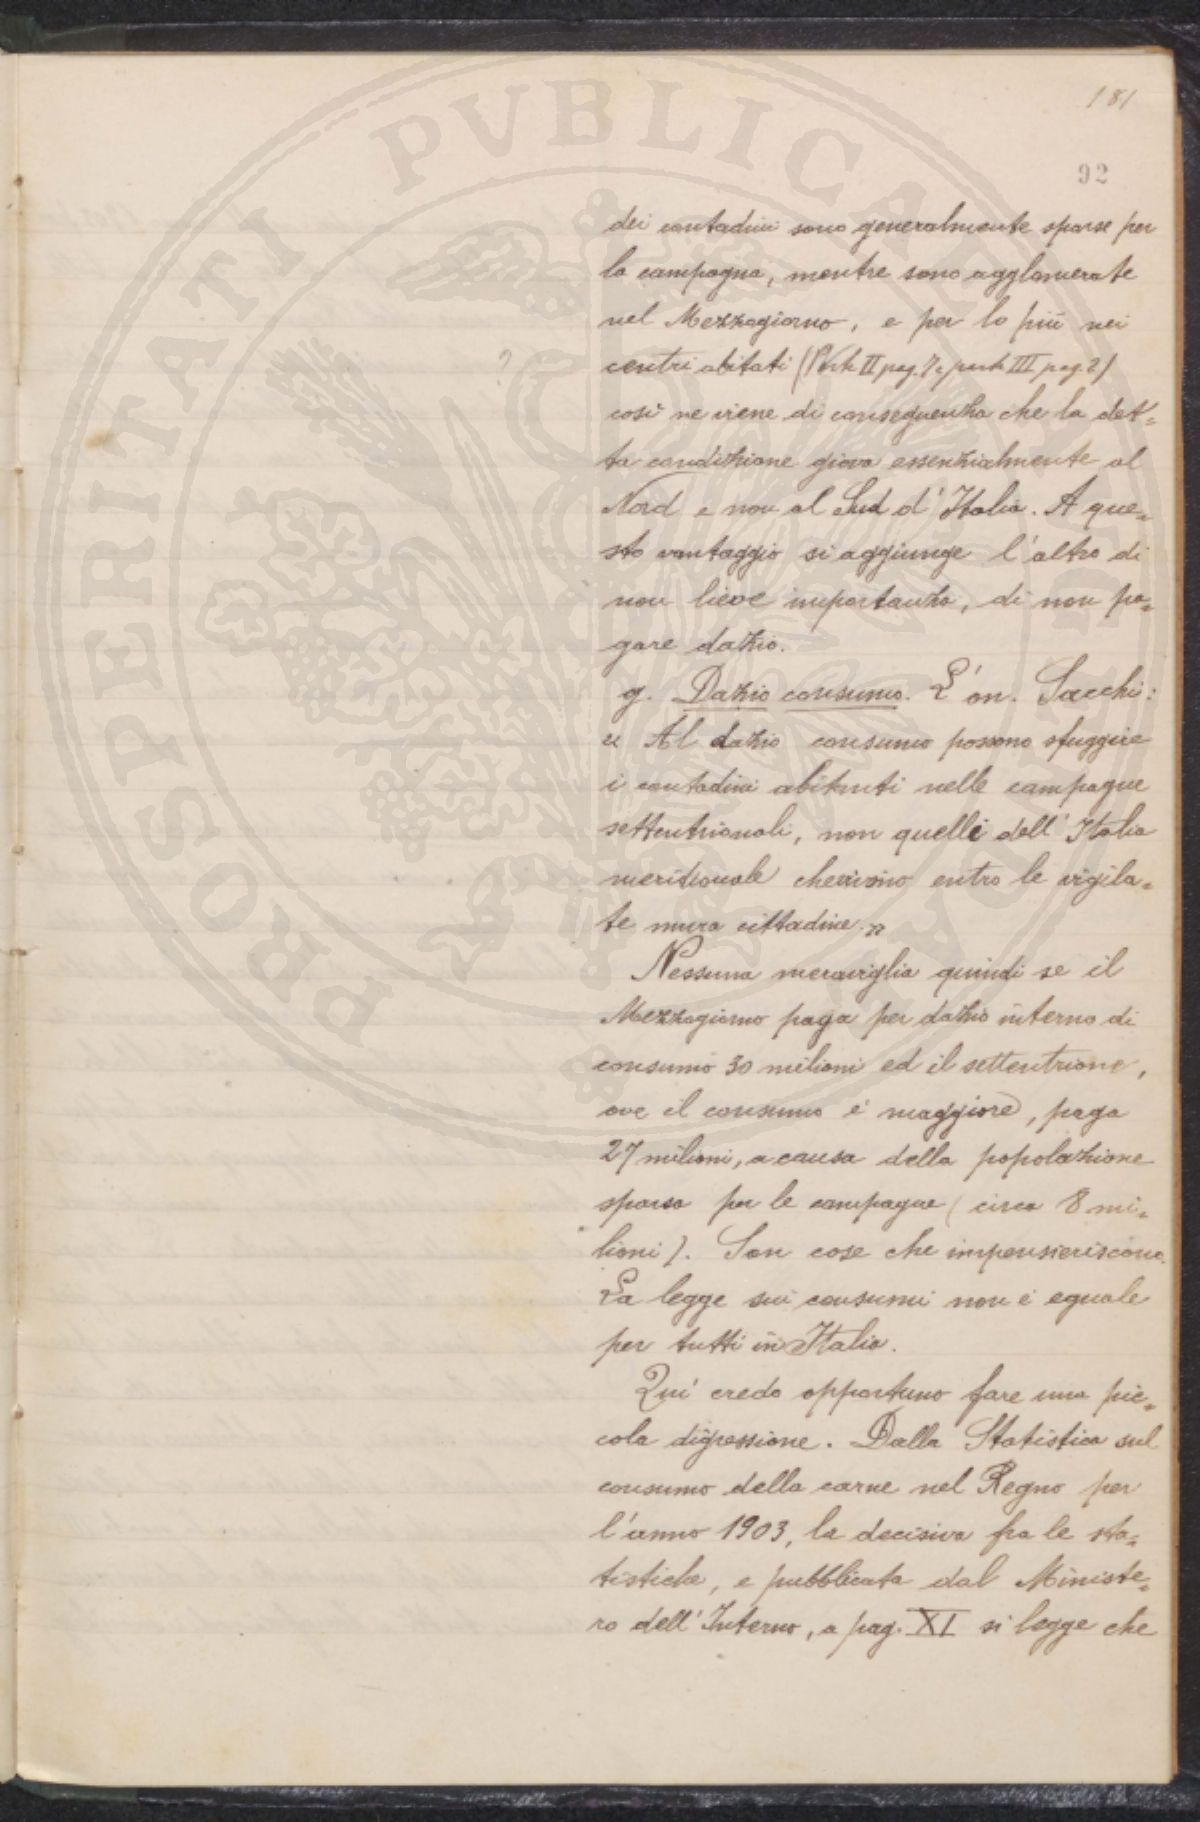 181
92
dei contadini sono generalmente sparse per
la campagna, mentre sono agglomerate
nel Mezzogiorno, e per lo più nei
?
centri abitati (Parte II pag. 7 e parte III pag. 2)
così ne viene di conseguenza che la det=
ta condizione giova essenzialmente al
Nord e non al Sud d'Italia. A que=
sto vantaggio si aggiunge l'altro di
non lieve importanza, di non pa=
gare dazio.
g. Dazio consumo. L'on. Sacchi:
« Al dazio consumo possono sfuggire
i contadini abitanti nelle campagne
settentrionali, non quelli dell'Italia
meridionale che vivono entro le vigila=
te mura cittadine.»
Nessuna meraviglia quindi se il
Mezzogiorno paga per dazio interno di
consumo 30 milioni ed il settentrione,
ove il consumo è maggiore, paga
27 milioni, a causa della popolazione
sparsa per le campagne (circa 8 mi=
lioni). Son cose che impensieriscono.
La legge sui consumi non è eguale
per tutti in Italia.
Quì credo opportuno fare una pic=
cola digressione. Dalla Statistica sul
consumo della carne nel Regno per
l'anno 1903, la decisiva fra le sta=
tistiche, e pubblicata dal Ministe=
ro dell'Interno, a pag. XI si legge che
PROSPERITATI PVBLICAE